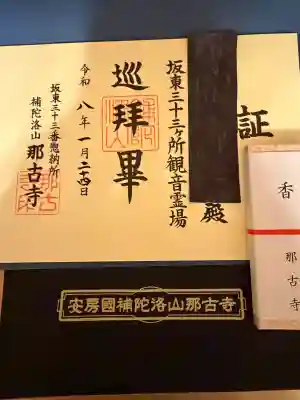 証
殿
坂東三十三ヶ所観音霊場
巡拝畢
令和八年一月二十四日
坂東三十三番惣納所
補陀洛山 那古寺
香
那古寺
安房國補陀洛山那古寺